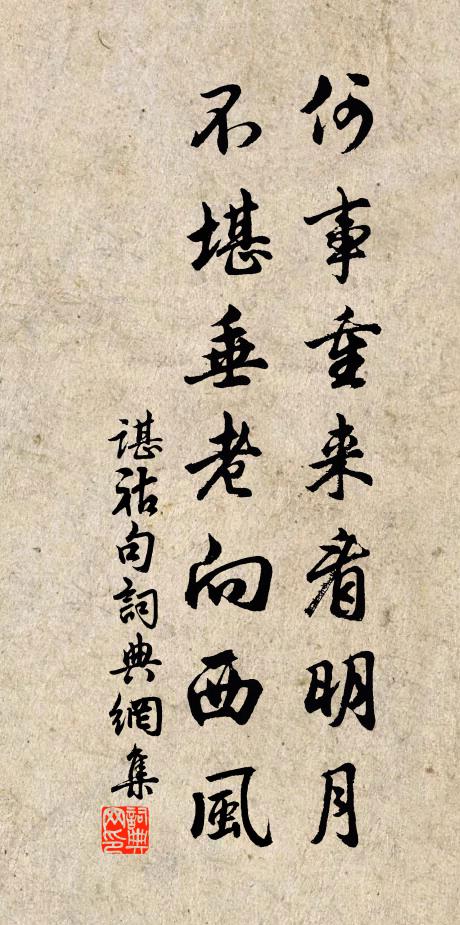 何事重来看明月
不堪垂老向西風
諶祜句詞典網集
詞典
网印